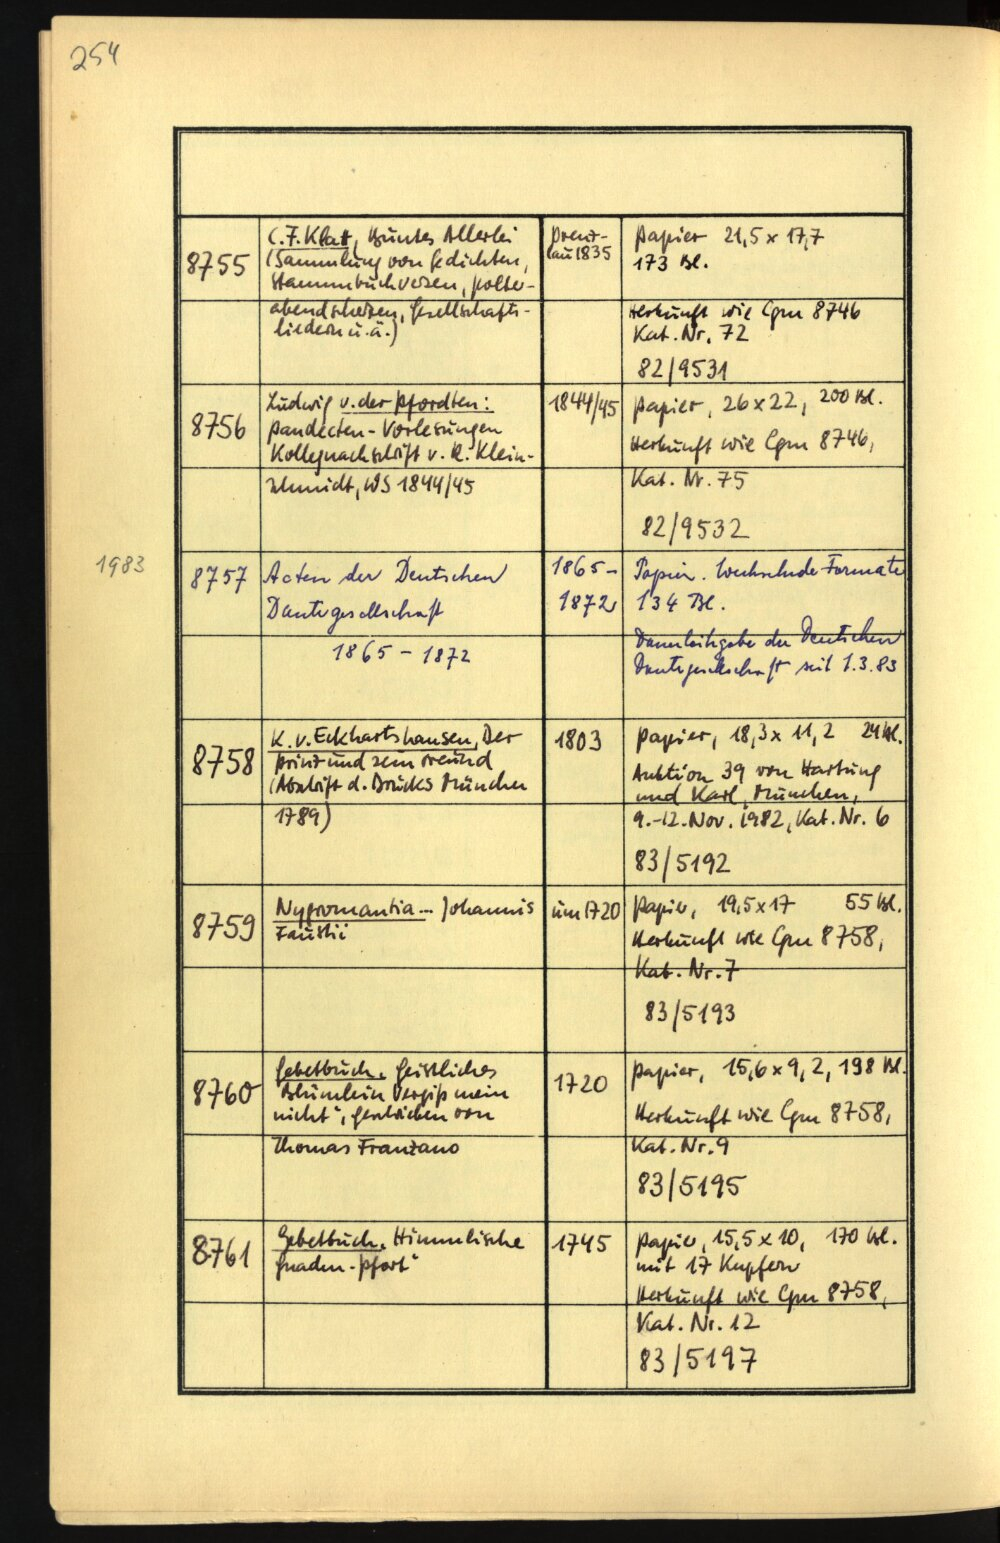 254
8755
C. F. Klatt, Buntes Allerlei
(Sammlung von Gedichten,
Stammbuchversen, Polter-
abendscherzen, Gesellschafts-
liedern u. ä.)
Prenz-
lau 1835
Papier 21,5 x 17,7
173 Bl.
Herkunft wie Cgm 8746
Kat. Nr. 72
82/9531
8756
Ludwig v. der Pfordten:
Pandecten-Vorlesungen
Kollegnachschrift v. R. Klein-
schmidt, WS 1844/45
1844/45
Papier, 26 x 22, 200 Bl.
Herkunft wie Cgm 8746,
Kat. Nr. 75
82/9532
1983
8757
Acten der Deutschen
Dantegesellschaft
1865 - 1872
1865 -
1872
Papier. Wechselnde Formate
134 Bl.
Dauerleihgabe der Deutschen
Dantegesellschaft seit 1.3.83
8758
K. v. Eckhartshausen, Der
Prinz und sein Freund
(Abschrift d. Drucks München
1789)
1803
Papier, 18,3 x 11,2 24 Bl.
Auktion 39 von Hartung
und Karl, München,
9.-12. Nov. 1982, Kat. Nr. 6
83/5192
8759
Nygromantia... Johannis
Faustii
um 1720
Papier, 19,5 x 17 55 Bl.
Herkunft wie Cgm 8758,
Kat. Nr. 7
83/5193
8760
Gebetbuch. Geistliches
"Blümlein Vergiß mein
nicht", geschrieben von
Thomas Franzano
1720
Papier, 15,6 x 9,2, 198 Bl.
Herkunft wie Cgm 8758,
Kat. Nr. 9
83/5195
8761
Gebetbuch. Himmlische
Gnaden-Pfort"
1745
Papier, 15,5 x 10, 170 Bl.
mit 17 Kupfern
Herkunft wie Cgm 8758,
Kat. Nr. 12
83/5197